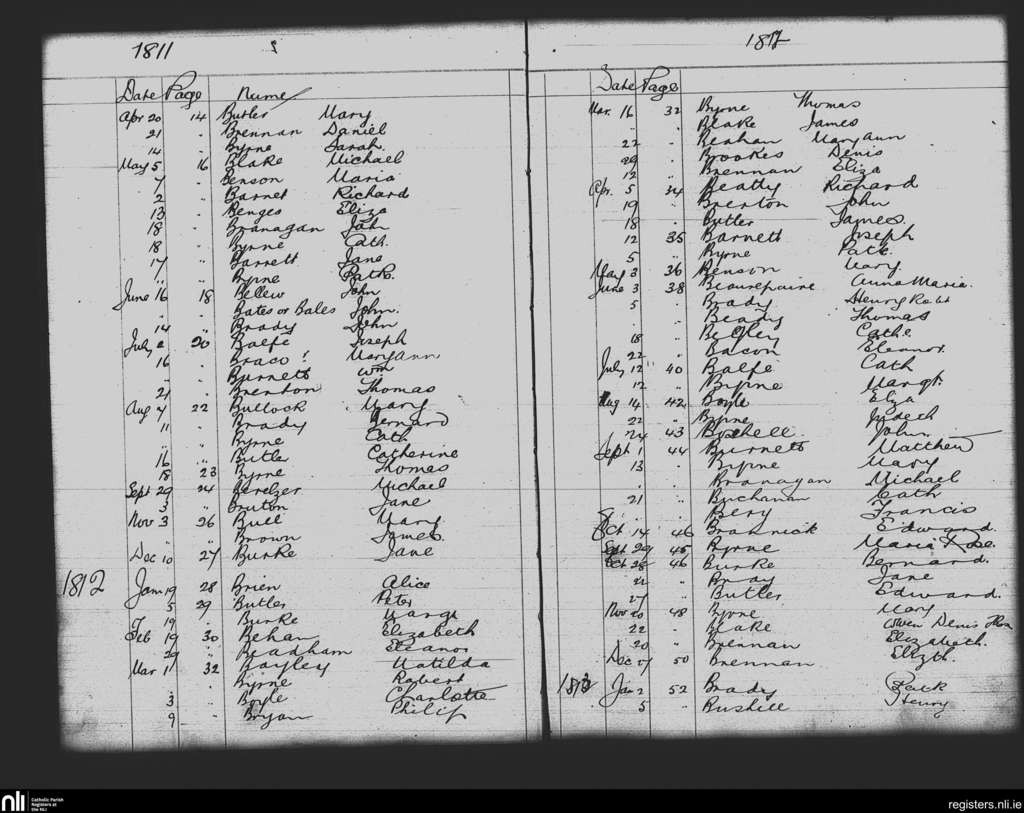 1811
Date Page Name
Apr 20 14 Butler Mary
21 " Brennan Daniel
14 " Byrne Sarah
May 5 16 Blake Michael
7 " Benson Maria
2 " Barnet Richard
13 " Benges Eliza
18 " Branagan John
18 " Byrne Cath
17 " Barrett Jane
" " Byrne Patk.
June 16 18 Bellew John
" " Bates or Bales John.
14 " Brady John
July 2 20 Balfe Joseph
16 " Braco? Maryann
" " Burnett Wm
21 " Brenton Thomas
Aug 4 22 Bullock Mary
11 " Brady Bernard
" " Byrne Cath
16 " Butler Catherine
18 23 Byrne Thomas
Sept 29 24 Michael
3 " Bruton Jane
Nov 3 26 Bull Mary
" " Brown James
Dec 10 27 Burke Jane
1812 Jan 19 28 Brien Alice
5 29 Butler Peter
19 " Burke Margt
Feb 19 30 Behan Elizabeth
29 " Bradham Eleanor
Mar 1 32 Bayley Matilda
" Byrne Robert
3 " Boyle Charlotte
9 " Bryan Philip
1812
Date Page
Mar. 16 32 Byrne Thomas
" " Blake James
22 " Benhan Mary Ann
29 " Brookes Denis
12 " Brennan Eliza
Apr. 5 34 Beatty Richard
19 " Brerton John
18 " Butler James
12 35 Barnett Joseph
5 " Byrne Patk.
May 3 36 Benson Mary
June 3 38 Beaurepaire Anna Maria.
5 " Brady Henry Robt
" " Beady Thomas
18 " Begley Cathe
22 " Bacon Eleanor
July 12 40 Balfe Cath
12 " Byrne Margt.
Aug 14 42 Boyle Eliza
22 " Byrne Judech
24 43 Boshell John
Sept 1 44 Burnett Matthew
13 " Byrne Mary
" " Branagan Michael
21 " Buchanan Cath
Bery Francis
Oct 14 46 Brannick Edward.
Sept 29 45 Byrne Maria Rose.
Oct 28 46 Burke Bernard.
22 " Bray Jane
27 " Butler Edward.
Nov 20 48 Byrne Mary
22 " Blake Owen Denis Thos
20 " Brennan Elizabeth.
Dec 27 50 Brennan Elizth.
1813 Jan 2 52 Brady Patk
5 " Bushill Henry
nli Catholic Parish
Registers at
the NLI
registers.nli.ie